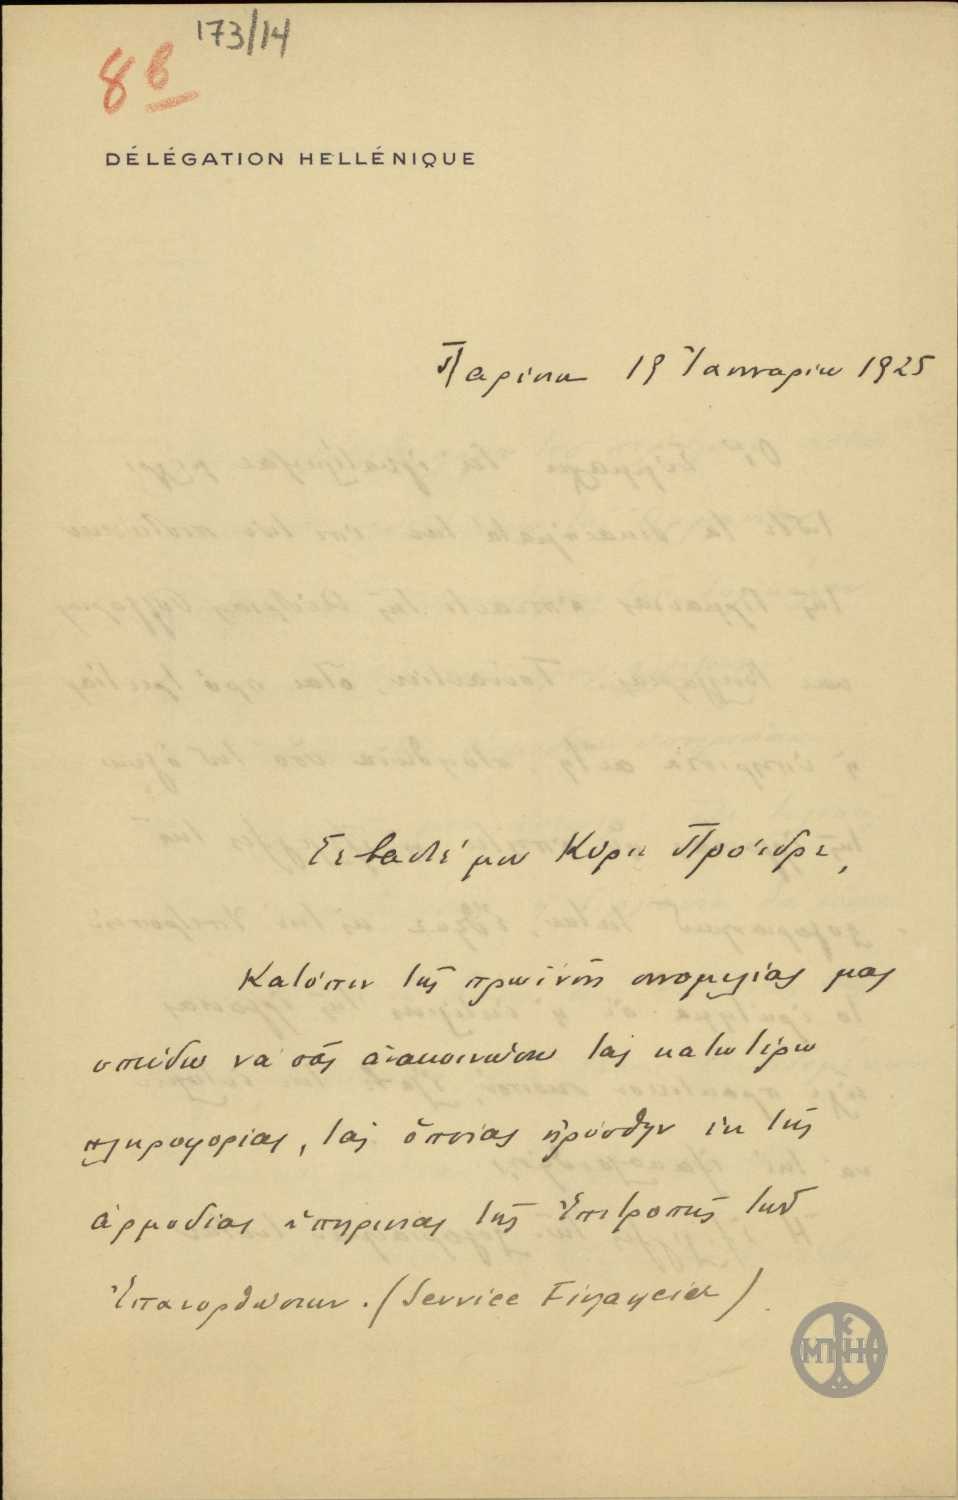 173/14
8β
DÉLÉGATION HELLÉNIQUE
Παρίσιοι 19 Ἰανουαρίου 1925
Σεβαστέ μου Κύριε Πρόεδρε,
Κατόπιν τῆς πρωϊνῆς συνομιλίας μας
σπεύδω νὰ σᾶς ἀνακοινώσω τὰς κατωτέρω
πληροφορίας, τὰς ὁποίας ἠρύσθην ἐκ τῆς
ἁρμοδίας ὑπηρεσίας τῆς Ἐπιτροπῆς τῶν
Ἐπανορθώσεων. (Service Financier)
ΜΠΗ